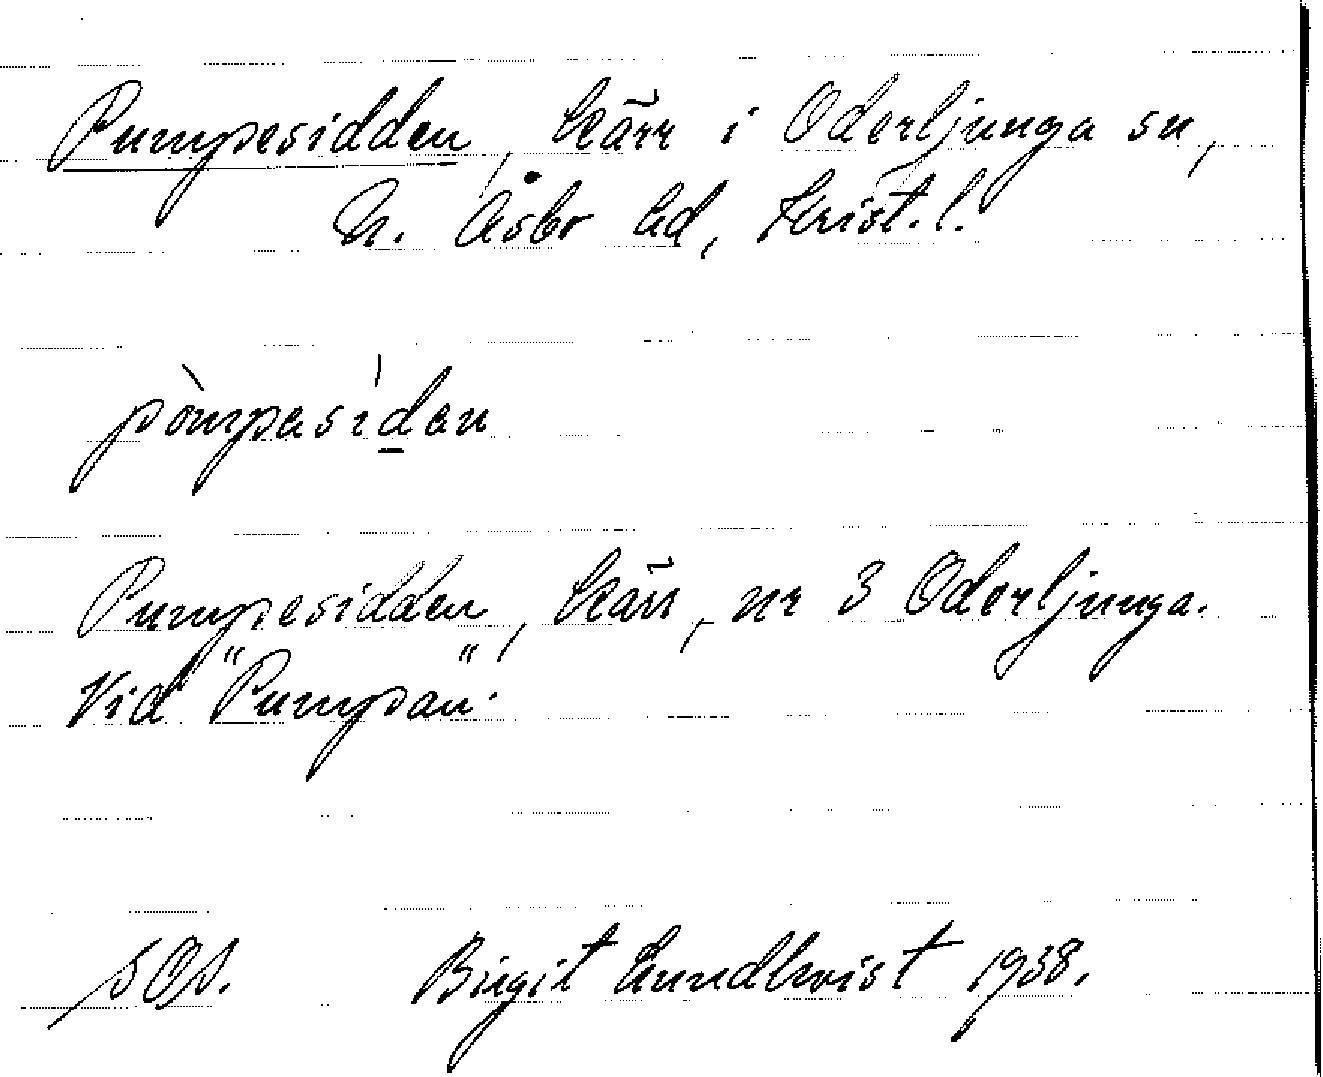 Pumpesidden, kärr i Oderljunga sn,
N. Åsbo hd, Krist. l.
pòmpasìdan
Pumpesidden, kärr, nr 3 Oderljunga.
Vid "Pumpan".
Birgit Lundkvist 1938.